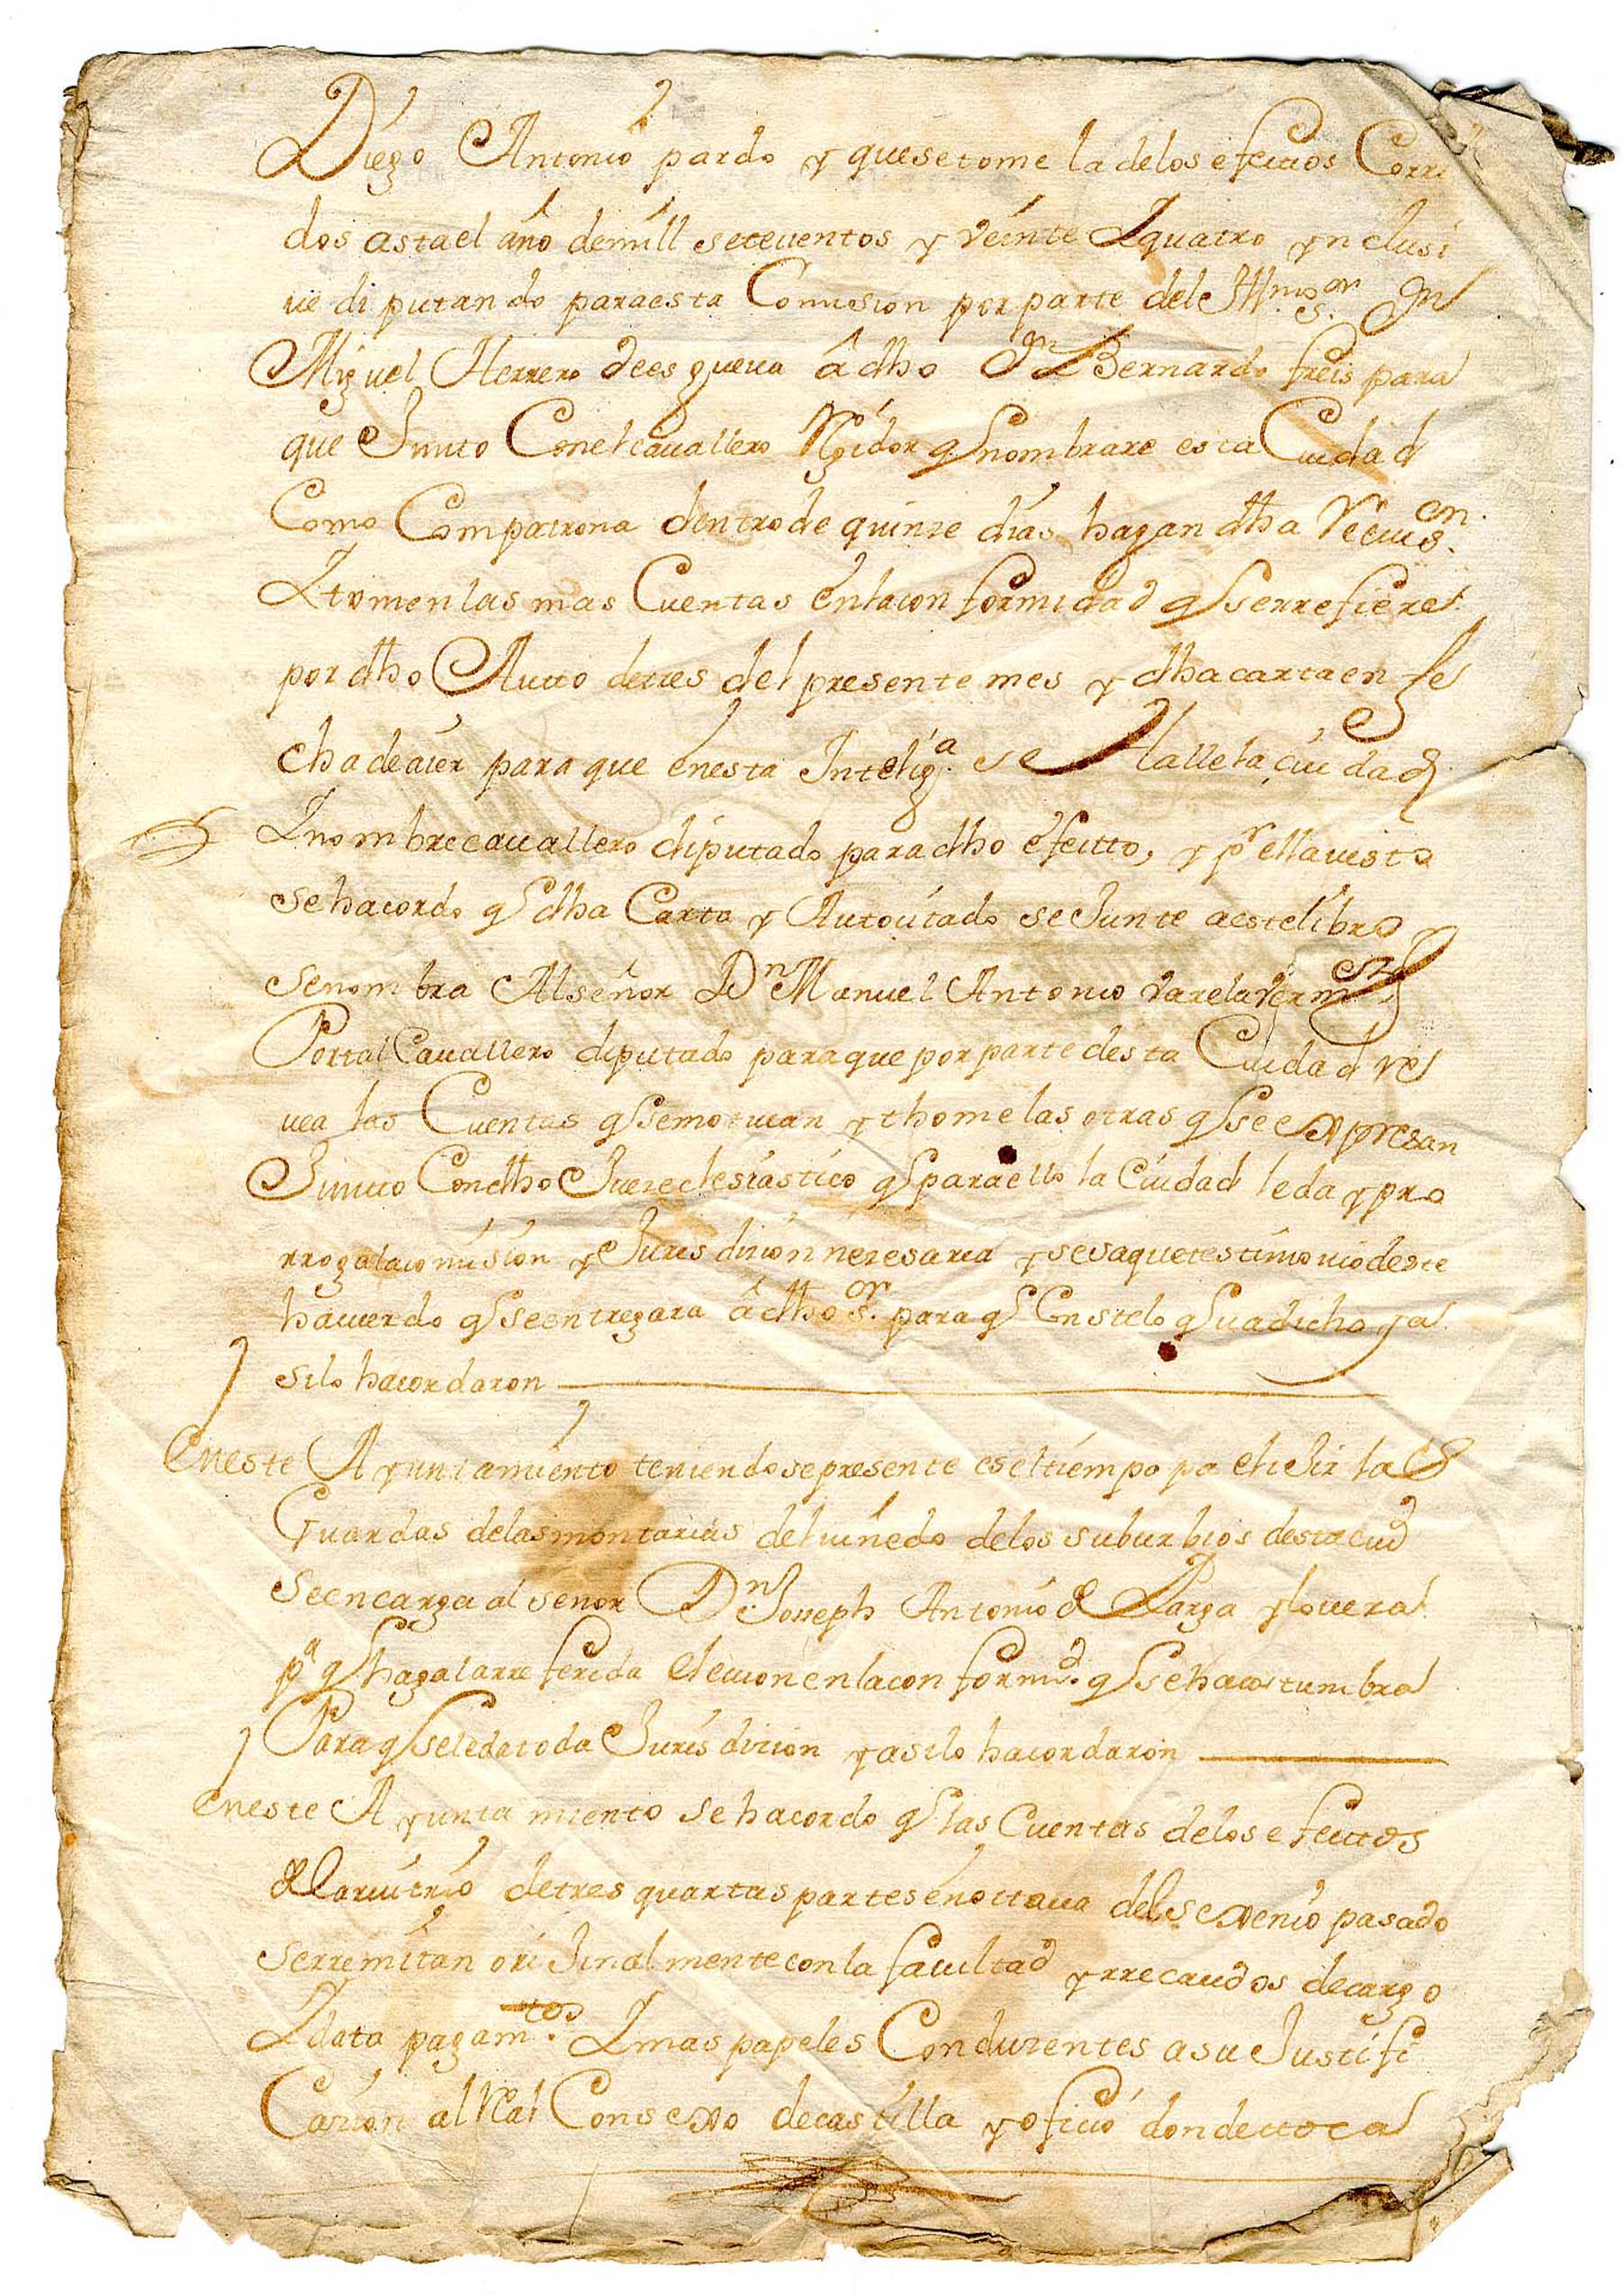 Diego Antonio pardo y quesetome la delos efectos Corri
dos astael año demill setecientos y veinte Y quatro ynclusi
ue diputando paraesta Comision por parte dele Yllmo sor Dn
Miguel Herrero deesgueua â dho Dn Bernardo freis para
que Junto Conelcauallero Rexidor q nombrare esta Ciudad
Como Compatrona dentrode quinze dias hagan dha Reuison.
Y tomenlas mas Cuentas enlaconformidad q serrefiere
por dho Auto detres del presente mes y dhacartaen fe
chadeaier para que enesta Intelig.a se Halle la ciudad
Y nombrecauallero diputado paradho efecto, y pr ellauisto
sehacordo q dha Carta y Autocitado seJunte aestelibro
senombra Alseñor Dn Manuel Antonio varela
Portal Cauallero diputado paraque por parte desta Ciudad re
uea las Cuentas q semotiuan y thome las otras q se expresan
Junto Condho Juezeclesiastico q paraello la Ciudad leda y pro
rrogalacomision y Jurisdizion nezesaria y sesaquetestimoniodeste
hacuerdo q seentregara â dho sor. para q Conste lo q ua dicho ya
silo hacordaron
Eneste Ayuntamiento teniendosepresente eseltiempo pa eliJir las
Guardas delasmontarias deluiñedo delos suburbios destaciud
seencarga al señor Dn Joseph Antonio de Parga ylouera
pa q hagalarreferida eleccionenlaconformd. q sehacostumbra
Para q seledatoda Jurisdizion yasilo hacordaron
Eneste Ayuntamiento sehacordo q las Cuentas delos efectos
del aruitrio detres quartas partes enoctaua del sexenio pasado
serremitan oriJinalmenteconla facultad yrrecaudos decargo
Y data pagamtos. Y mas papeles Conduzentes asu Justifi
Cazion al Rl Consexo decastilla y oficio dondettoca